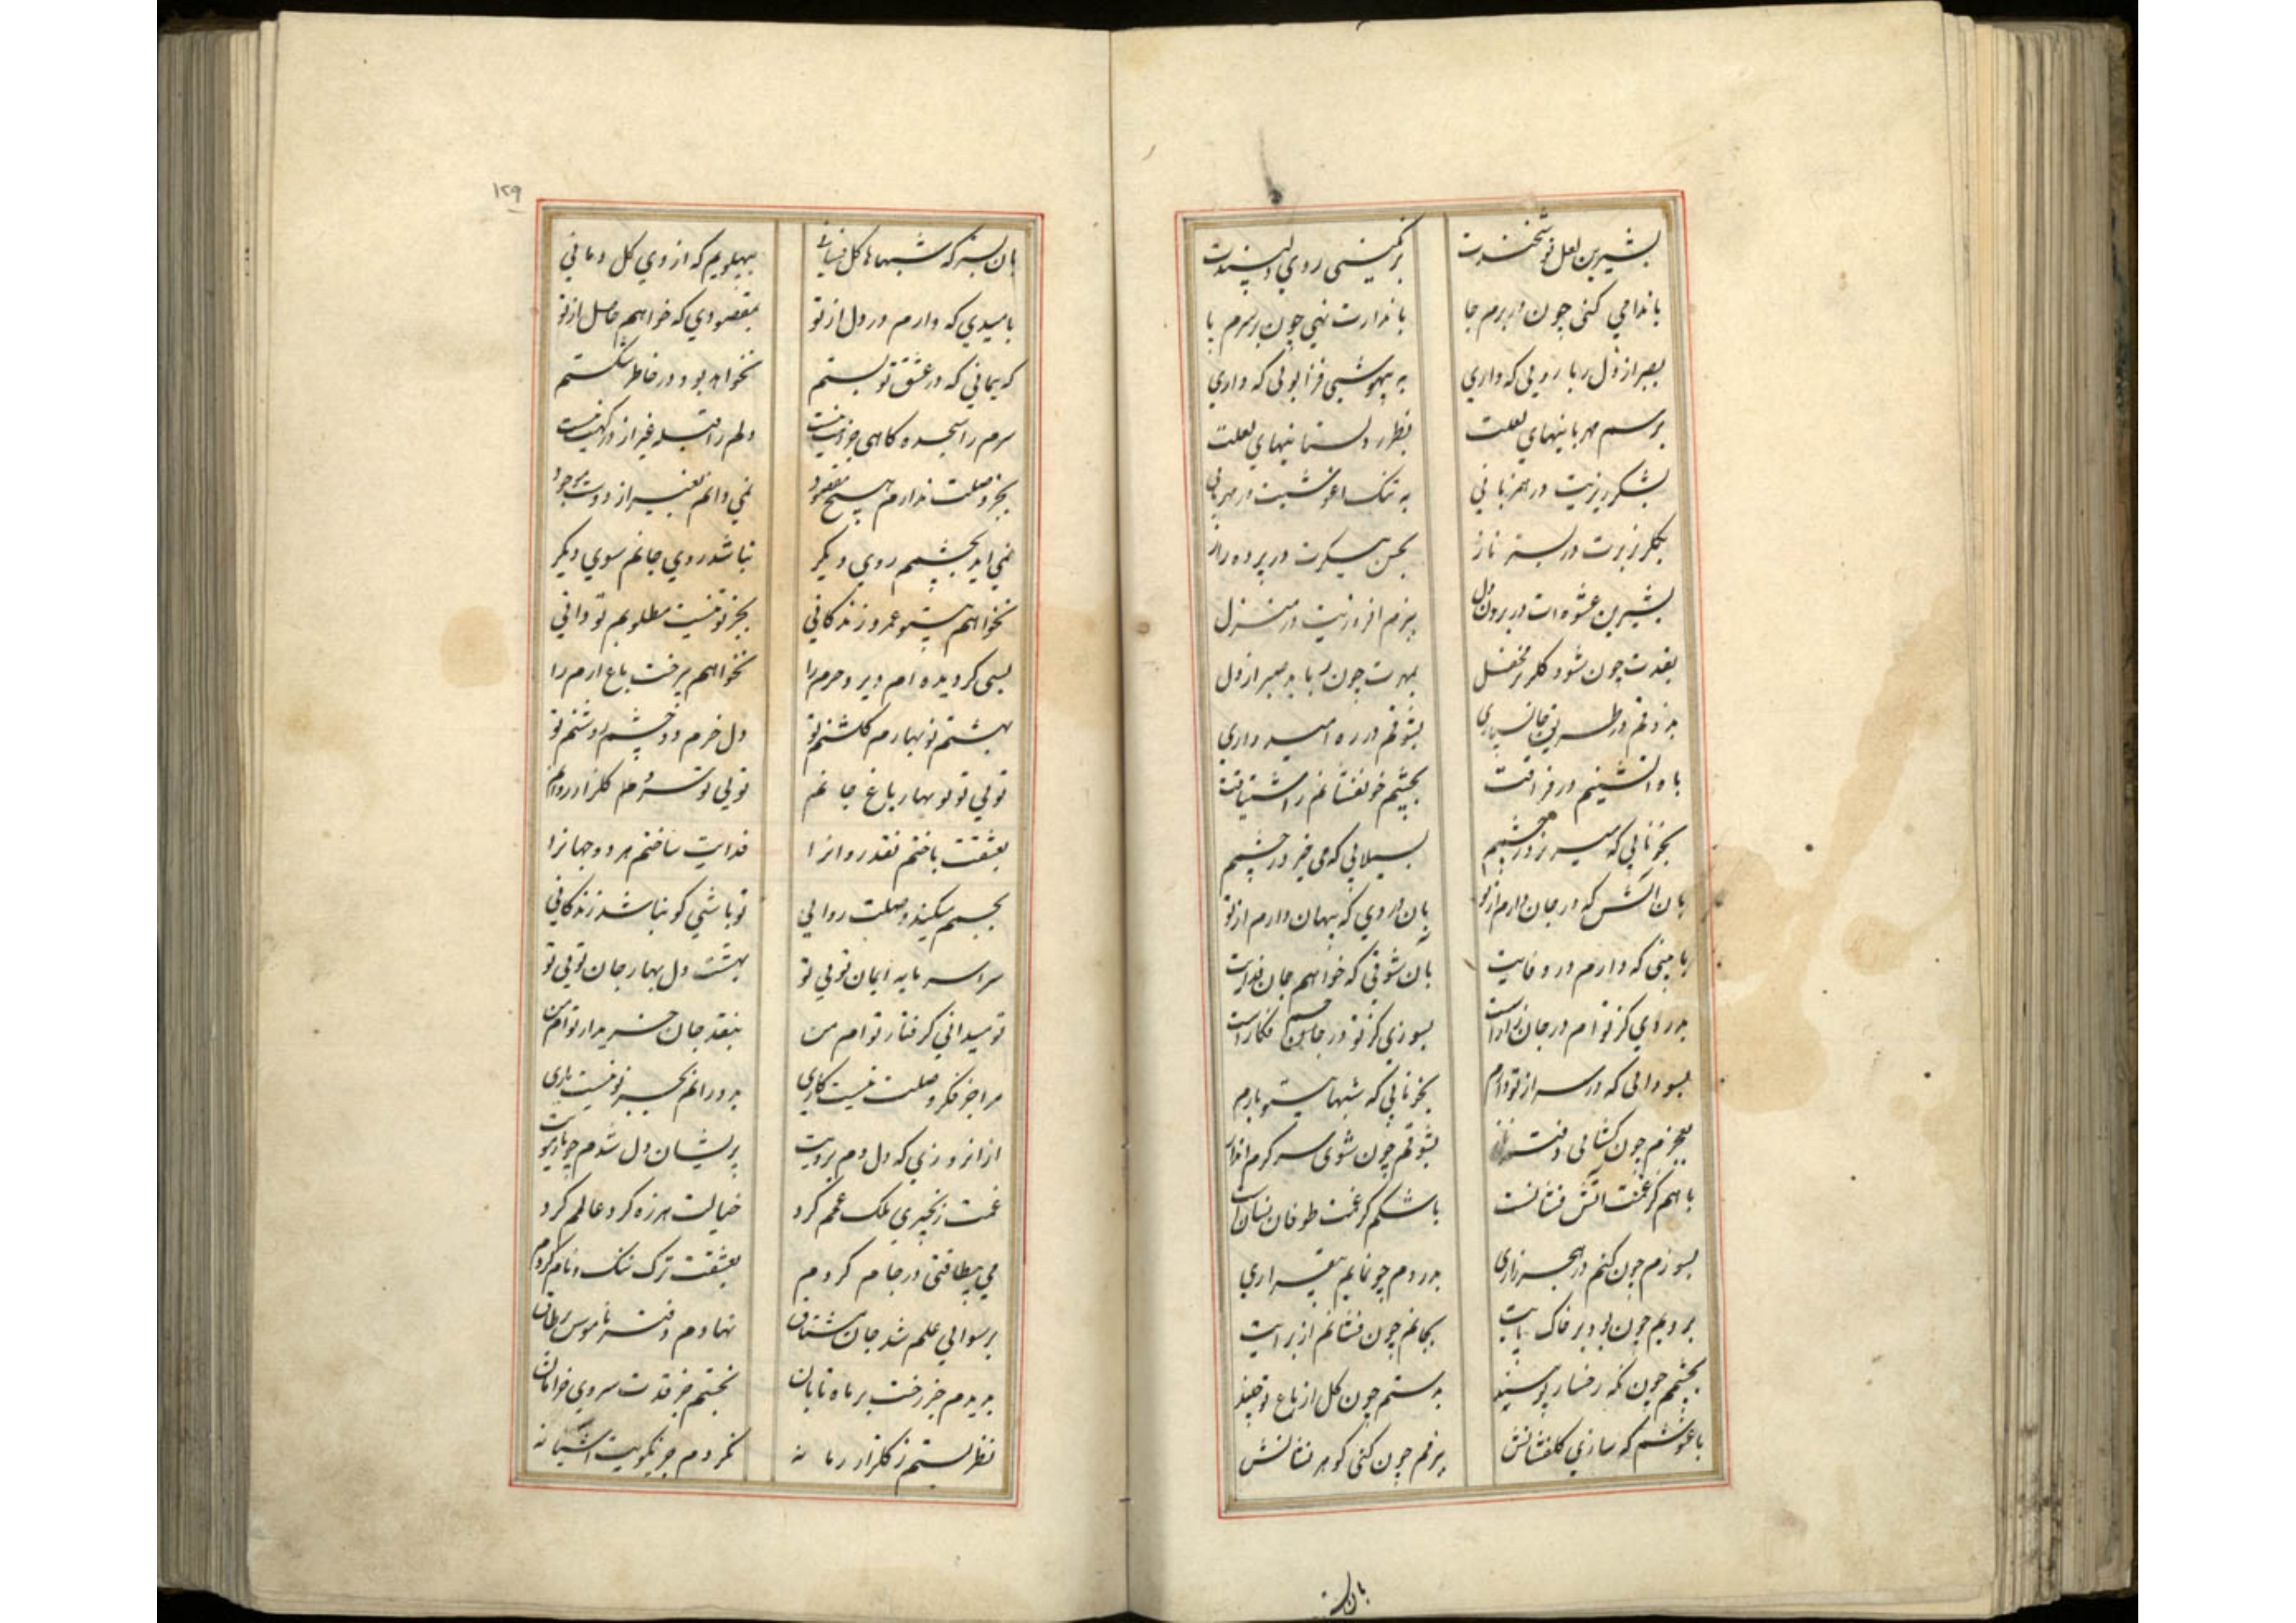 بشیرین لعل نوشخندت برنکینی روی دلپسندت
باندامی کنی چون در برم جا باندازت نهی چون بر سرم پا
بصبر از دل ربا رویی که داری به بیهوشی فزا بویی که داری
برسم مهربانیهای لعلت بطرز دلستانیهای لعلت
بشکرریزیت در همزبانی به تنک اغوشیت در مهربانی
بکلریزیت در بستر ناز بحسن پیکرت در پرده راز
بشیرین عشوه ات در بردن دل ببزم افروزیت در منزل
بقدت چون شود کلریز محفل بمهرت چون رباید صبر از دل
بذوقم در طریق جانسپاری بشوقم در ره امیدواری
باه اتشینم در فراقت بچشم خونفشانم ز اشتیاقت
بخونابی که میریزد ز چشمم بسیلابی که می خیزد ز چشمم
بان اتش که در جان دارم از تو بان دردی که پنهان دارم از تو
بامیدی که دارم در وفایت بان شوقی که خواهم جان فدایت
بدردی کز توام در جان زارست بسوزی کز تو در جان فکارست
بسودایی که در سر از تو دارم بخونابی که شبها بیتو بارم
بعجزم چون کشایی دفتر ناز بشوقم چون شوی سرکرم انداز
باهم کز غمت اتش فشانست باشکم کز غمت طوفان نشانست
بسوزم چون کنم در هجر زاری بدردم چو نمایم بیقراری
برویم چون بود بر خاک پایت بجانم چون فشانم از برایت
بچشمم چون که رخسار تو بیند بدستم چون کل از باغ تو چیند
باغوشم که سازی کلفشانش ببزمم چون کنی کوهر نشانش
بان
۱۲۹
بان بستر که شبها کل فشانی بپهلویم که از وی کل دمانی
بامیدی که دارم در دل از تو بمقصودی که خواهم حاصل از تو
که پیمانی که در عشق تو بستم نخواهد بود در خاطر شکستم
سرم را سجده کاهی جز درت نیست دلم را قبله غیر از درکهت نیست
بجز وصلت ندارم هیچ مقصود نمی دانم بغیر از دوست موجود
نمی اید بچشمم روی دیکر نباشد روی جانم سوی دیکر
نخواهم بیتو عمر و زندکانی بجز تو نیست مطلوبم تو دانی
بسی کردیده ام دیر و حرم را نخواهم بیرخت باغ ارم را
بهشتم تو بهارم کلشنم تو دل خرم دو چشم روشنم تو
تویی تو نو بهار باغ جانم تویی تو سرو کلزار روانم
بعشقت باختم نقد روانرا فدایت ساختم هر دو جهانرا
بجسمم میکند وصلت روانی تو باشی کو نباشد زندکانی
سراسر مایه ایمان تویی تو بهشت دل بهار جان تویی تو
تو میدانی کرفتار توام من بنقد جان خریدار توام من
مرا جز فکر وصلت نیست کاری بدورانم بجز تو نیست یاری
از انروزی که دل دادم برویت پریشان دل شدم چو تار مویت
غمت زنجیری ملک غمم کرد خیالت هرزه کرد عالمم کرد
می بیطاقتی در جام کردم بعشقت ترک ننک و نام کردم
برسوایی علم شد جان مشتاق نهادم دفتر ناموس بر طاق
ندیدم جز رخت بر ماه تابان نجستم جز قدت سروی خرامان
نظر بستم ز کلزار زمانه نکردم جز بکویت اشیانه